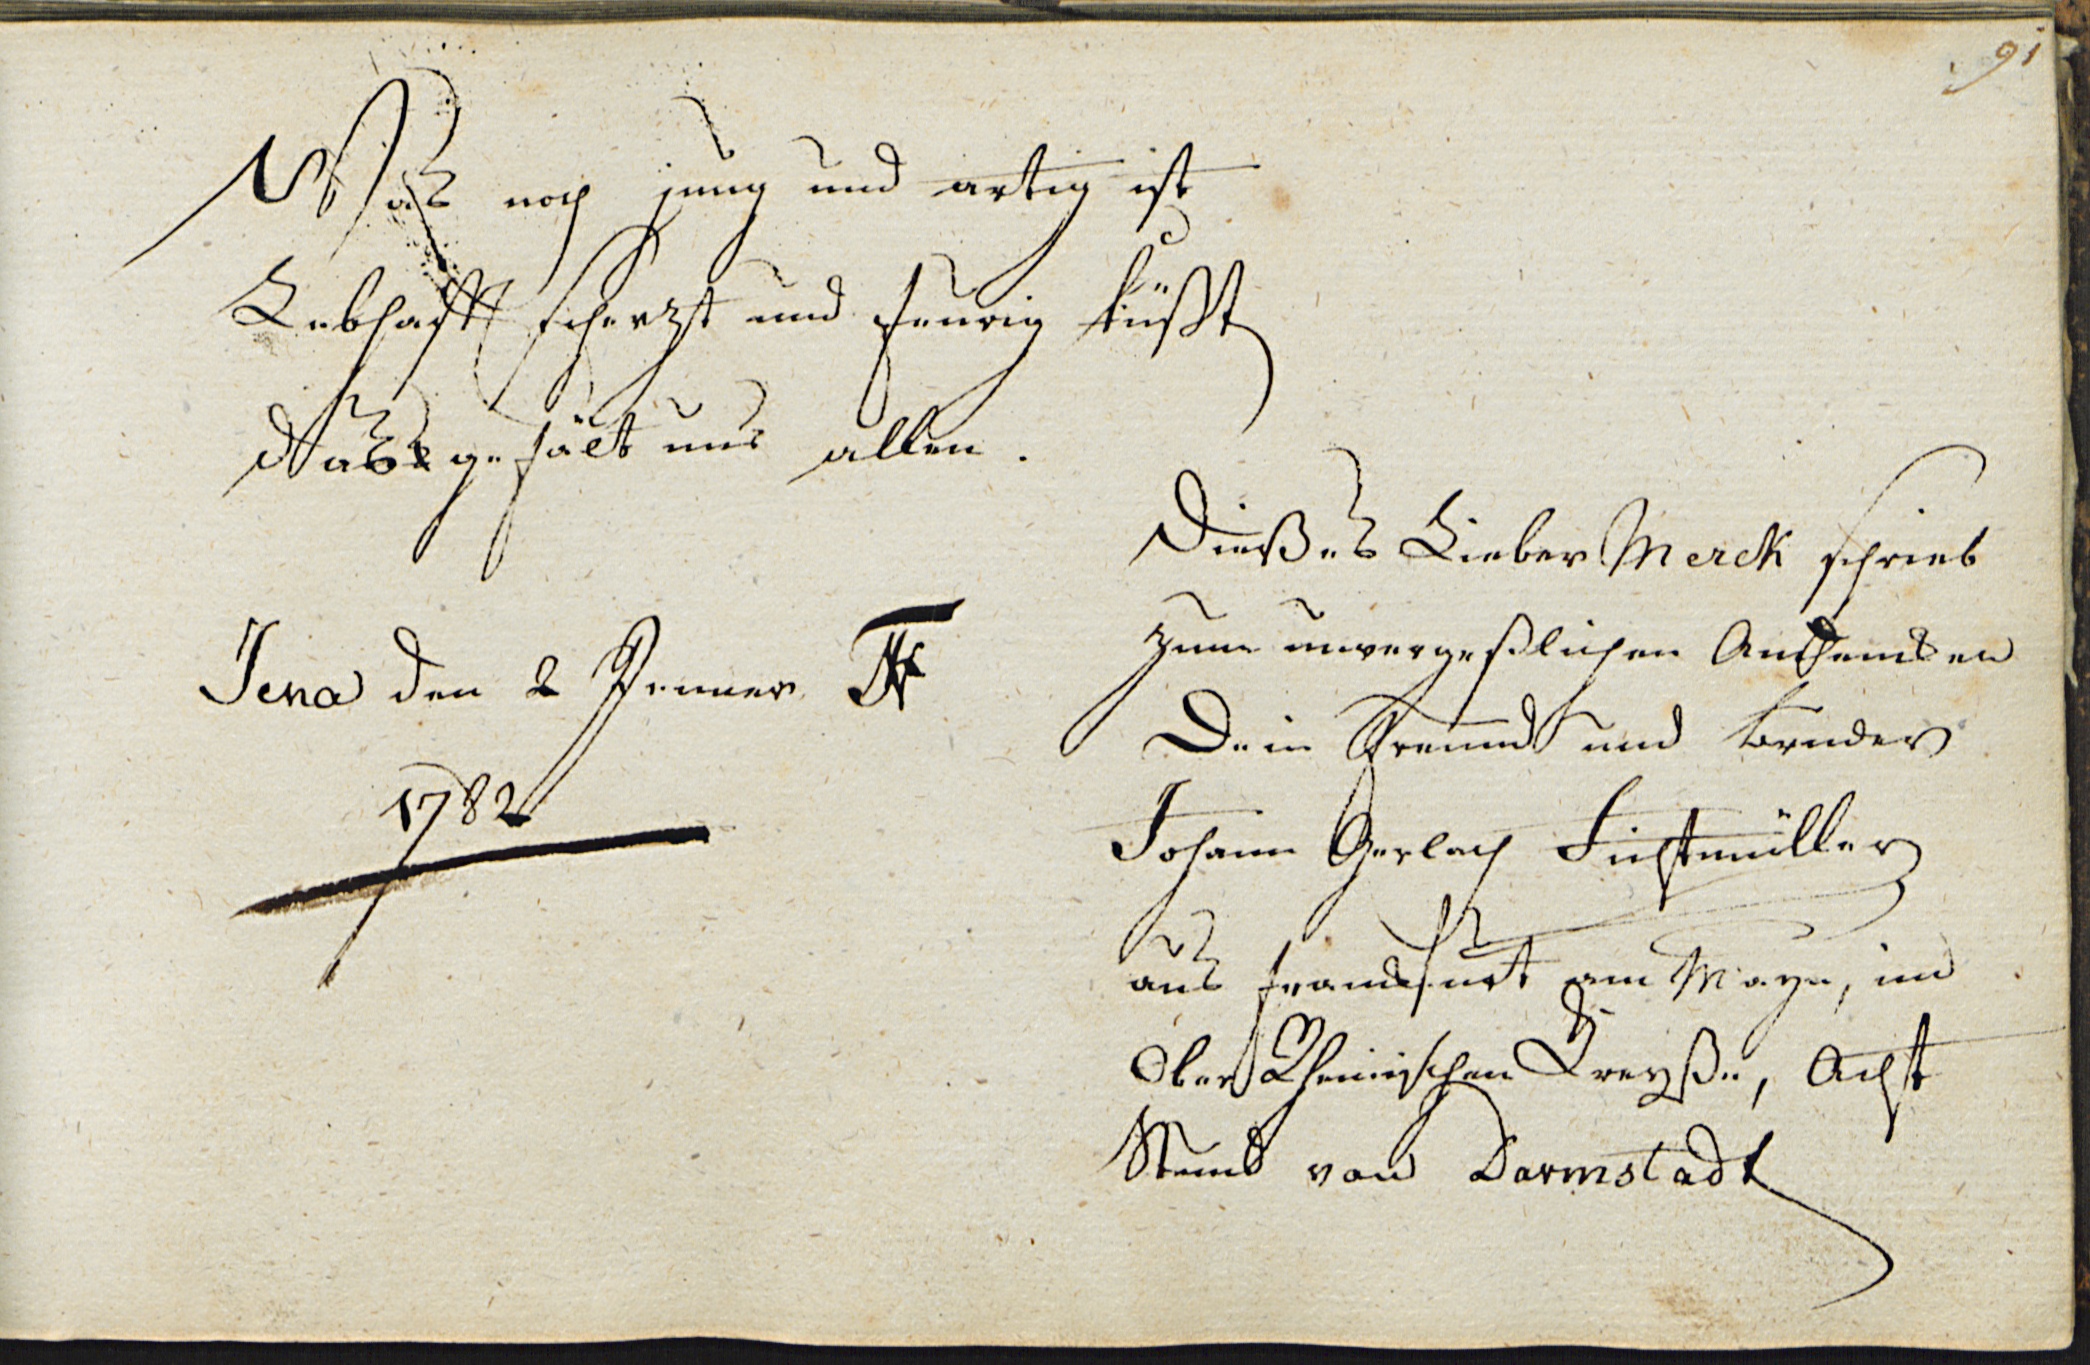 91
Was noch jung und artig ist
Lebhafft scherzt und feurig küßt
das gefält uns allen.
Jena den 2 Jenner
1782
Dießes Lieber Merck schrieb
zum unvergeßlichen Andencken
Dein Freund und Bruder
Johann Gerlach Fichtmüller
aus Franckfurt am Mayn, im
Ober Rheinischen Kreyße, Acht
Stund von Darmstadt